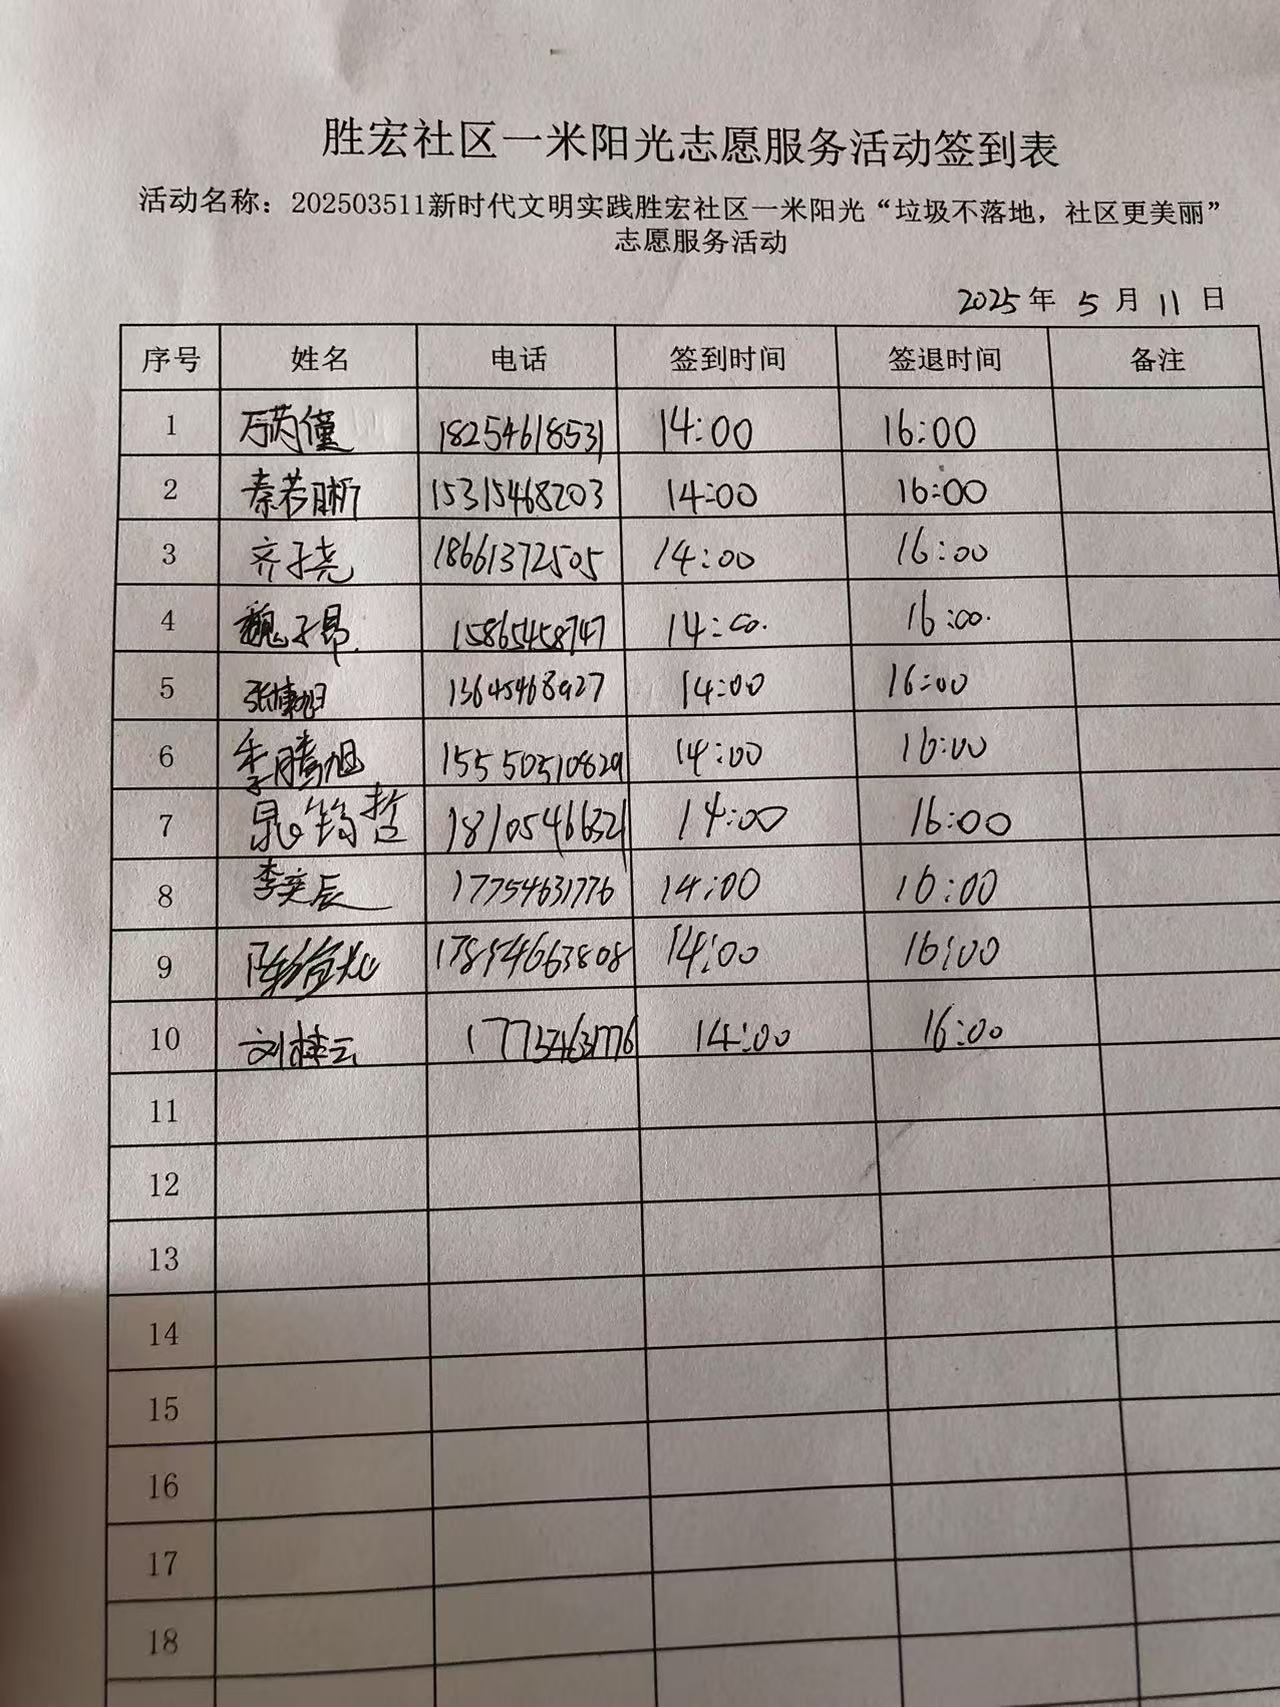 胜宏社区一米阳光志愿服务活动签到表
活动名称：202503511新时代文明实践胜宏社区一米阳光“垃圾不落地，社区更美丽”
志愿服务活动
2025年 5 月 11 日
序号 姓名 电话 签到时间 签退时间 备注
1 万芮僮 18254618531 14:00 16:00
2 秦若晰 15315468203 14:00 16:00
3 齐子尧 18661372505 14:00 16:00
4 魏子昂 15865458747 14:00 16:00
5 13645468927 14:00 16:00
6 季腾旭 15550510829 14:00 16:00
7 晁钧哲 18105466321 14:00 16:00
8 李奕辰 17754631776 14:00 16:00
9 17854663808 14:00 16:00
10 17754631776 14:00 16:00
11
12
13
14
15
16
17
18